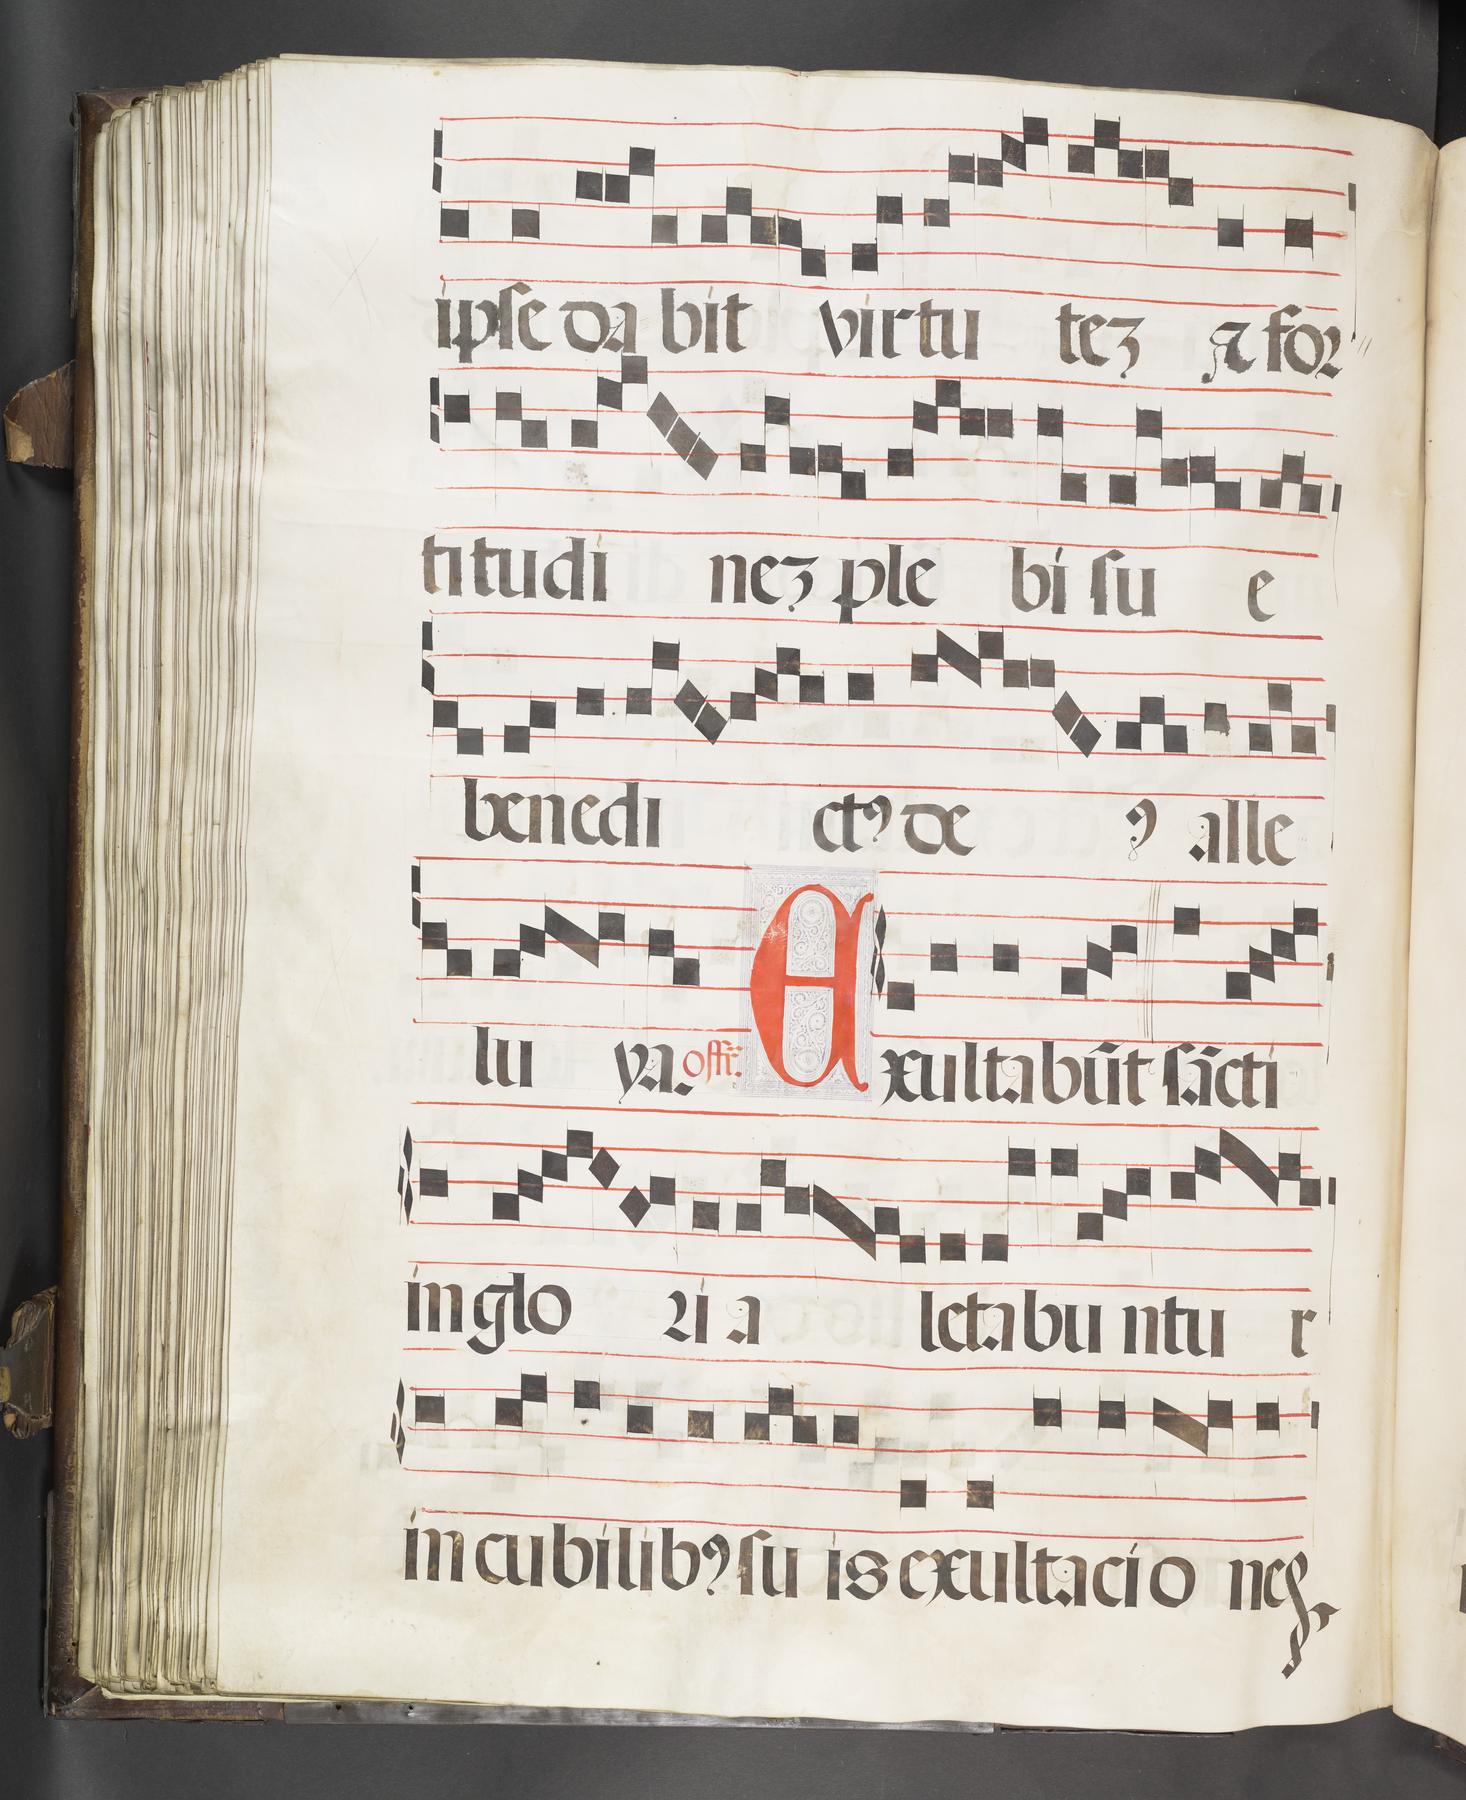 ipse da bit virtu teꝫ ⁊ for
titudi neꝫ ple bi su e
benedi ctꝰ de ꝰ alle
lu ya. offr̄: Exultabūt sācti
in glo ꝛi a letabu ntu r
in cubilibꝰ su is exultacio neſ